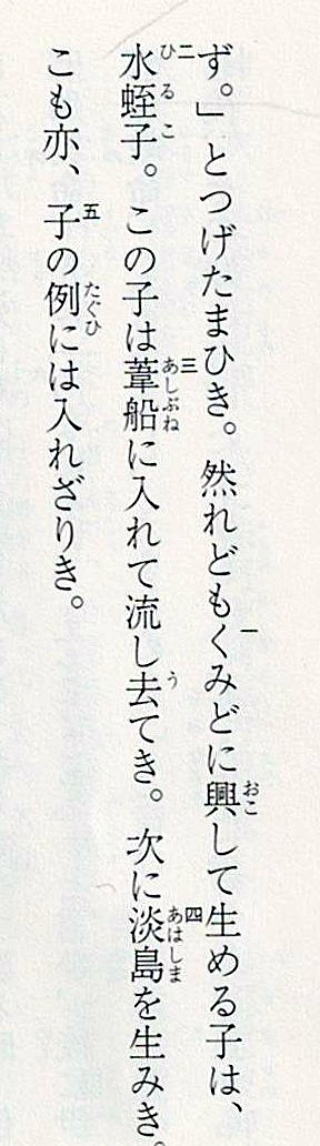 ず。」とつげたまひき。然れどもくみどに興して生める子は、
水蛭子。この子は葦船に入れて流し去てき。次に淡島を生みき。
こも亦、子の例には入れざりき。